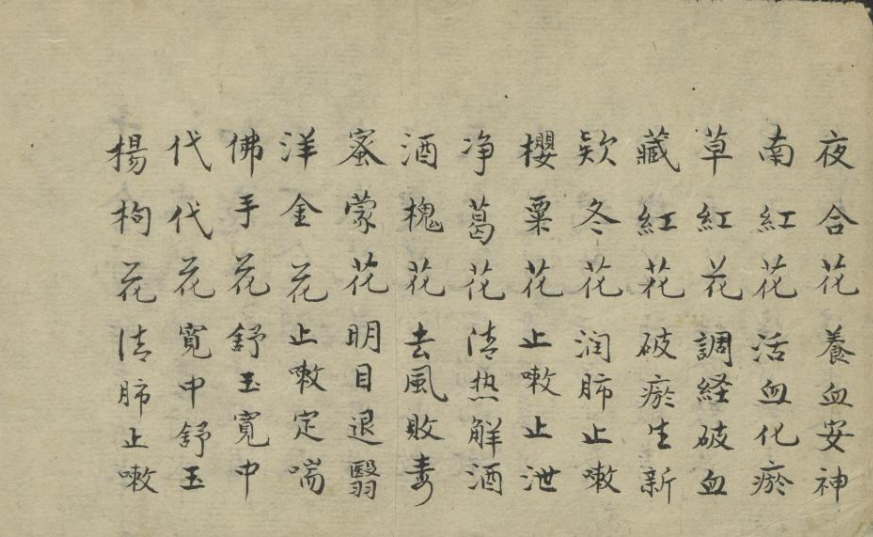 夜合花養血安神
南紅花活血化瘀
草紅花調経破血
藏紅花破瘀生新
欵冬花润肺止嗽
櫻粟花止嗽止泄
净葛花清热解酒
酒槐花去風敗毒
蜜蒙花明目退翳
洋金花止嗽定喘
佛手花舒玉寬中
代代花寬中舒玉
楊枸花清肺止嗽